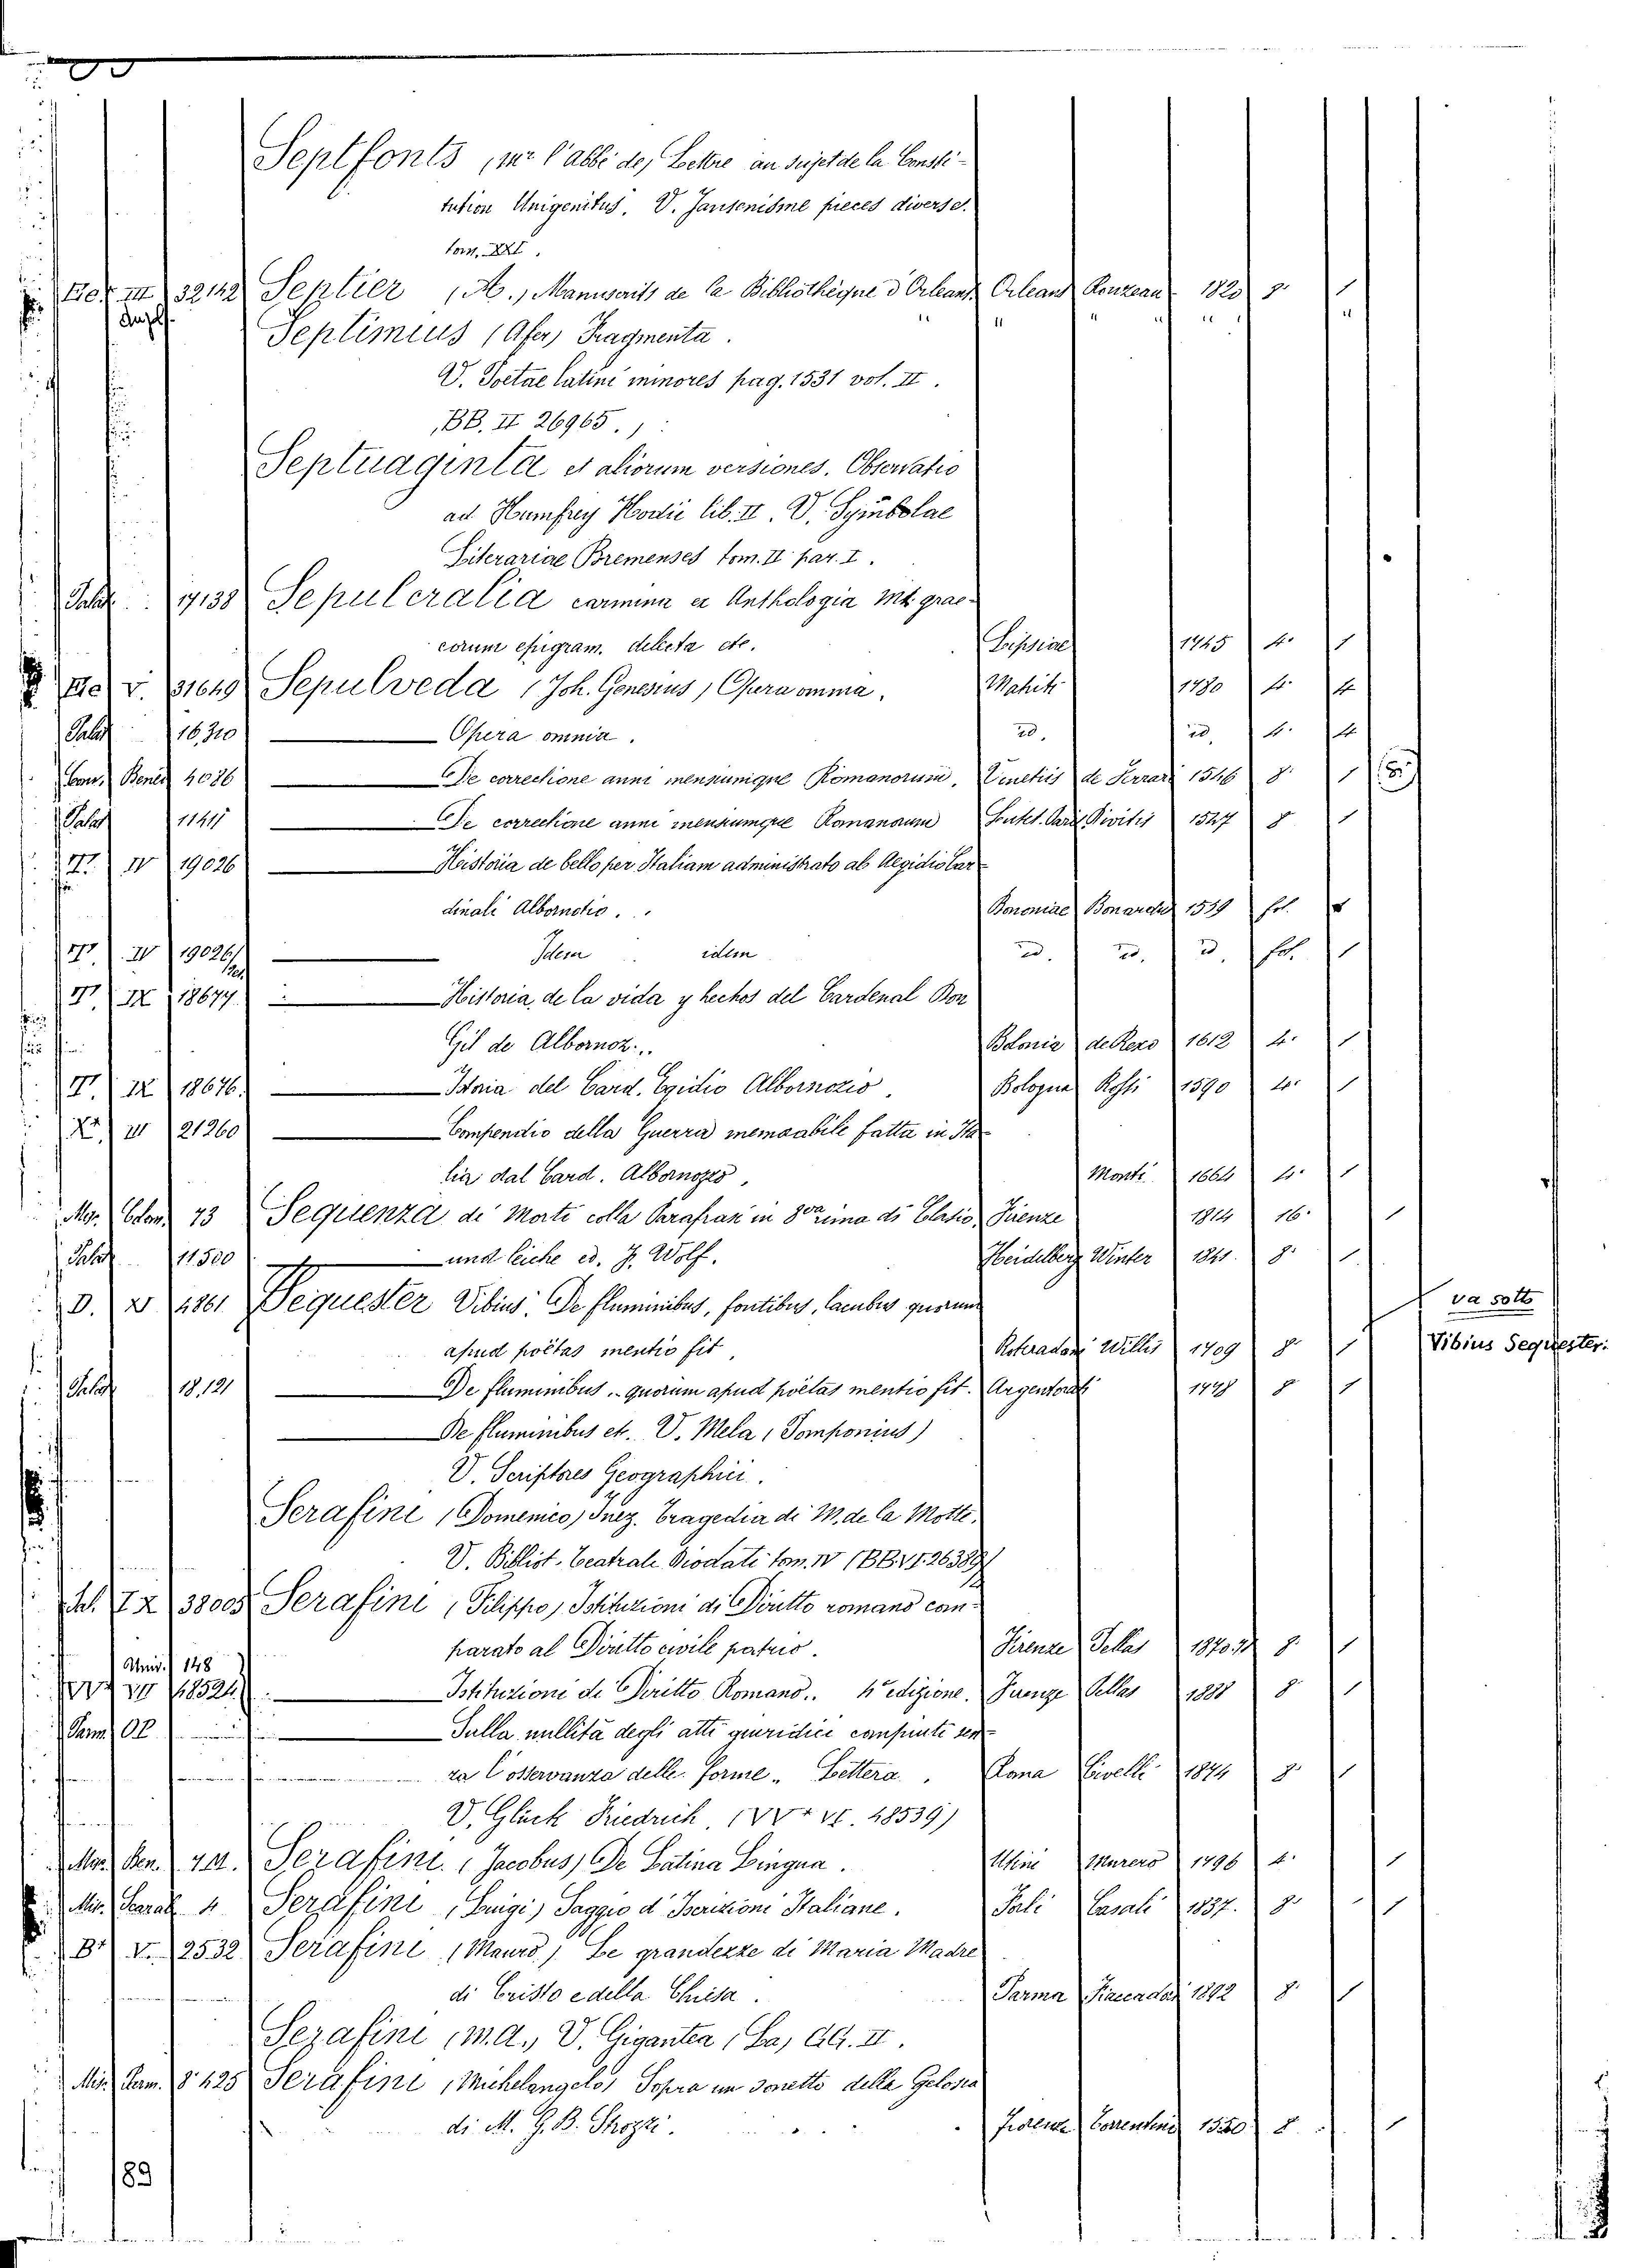 Septfonts, (mr l'abbé de) Lettre au sujet de la Consti-
tution Unigenitus. V. Jansenisme pieces diverse.
tom. XXI.
III 32142 Septier (A.) Manuscrits de la Bibliothèque d'Orleans Orleans Rouzeau 1820 8° 1
Septimius (Afer) Fragmenta.
V. Poetae latini minores pag. 1531 vol. II.
(BB. II 26965.)
Septuaginta et aliorum versiones. Observatio
ad Humfrey Hodii lib. II. V. Symbolae
Literariae Bremenses tom. II par. I.
Palat. 17138 Sepulcralia carmina ex Anthologia ms. grae-
corum epigram. delecta etc. Lipsiae 1745 4° 1
V. 31649 Sepulveda (Joh. Genesius) Opera omnia. Matriti 1780 4° 4
Palat 16,320 Opera omnia. id. id. 4° 4
Conv. Bened 4086 De correctione anni mensiumque Romanorum. Venetiis de Ferrari 1546 8° 1
Palat 1141 De correctione anni mensiumque Romanorum Divitis 1547 8 1
IV 19026 Historia de bello per Italiam administrato ab Aegidio Car-
dinali Albornotio. Bononiae 1559 fol.
IV 19026/ Idem idem id. id. id. fol. 1
IX 18677 Historia de la vida y hechos del Cardenal Don
Gil de Albornoz... Bolonia 1612 4° 1
IX 18676 Istoria del Card. Egidio Albornozio. Bologna Rossi 1590 4° 1
III 21260 Compendio della Guerra memorabile fatta in Ita-
lia dal Card. Albornozzo. Monti 1664 4° 1
73 Sequenza di Morti colla Parafrasi in 8va rima di Clasio, Firenze 1814 16° 1
Palat 11.500 und leiche ed. J. Wolf. Heidelberg Winter 1841. 8° 1
D. 4861 Sequester Vibius. De fluminibus, fontibus, lacubus quorum va sotto
apud poëtas mentio fit. Roteradami Willis 1709 8° 1 Vibius Sequester.
Palat 18,121 De fluminibus.. quorum apud poëtas mentio fit. Argentorati 1778 8 1
De fluminibus et. V. Mela (Pomponius)
V. Scriptores Geographici.
Serafini (Domenico) Inez. Tragedia di M. de la Motte.
V. Bibliot. Teatrale Diodati tom. IV (BB VI. 26389/
38005 Serafini (Filippo) Istituzioni di Diritto romano com-
parato al Diritto civile patrio. Firenze Pellas 8° 1
Univ. 148
Istituzioni di Diritto Romano.. 4a edizione. Firenze Pellas 1888 8° 1
Sulla nullità degli atti giuridici compiuti sen-
za l'osservanza delle forme.. Lettera. Roma Civelli 1874 8° 1
V. Glück Friedrich (VV+ VI. 48539)
Serafini (Jacobus) De Latina Lingua. Utini Murero 1796 4° 1
4 Serafini (Luigi) Saggio d'Iscrizioni Italiane. Forlì Casali 1837. 8° 1
B+ V. 2532 Serafini (Mauro) Le grandezze di Maria Madre
di Cristo e della Chiesa. Parma Fiaccadori 1892 8° 1
Serafini (M.A.) V. Gigantea (La) GG. II.
Serafini (Michelangelo) Sopra un sonetto della Gelosia
di M. G. B. Strozzi. Fiorenza Torrentino 1550 8 1
189